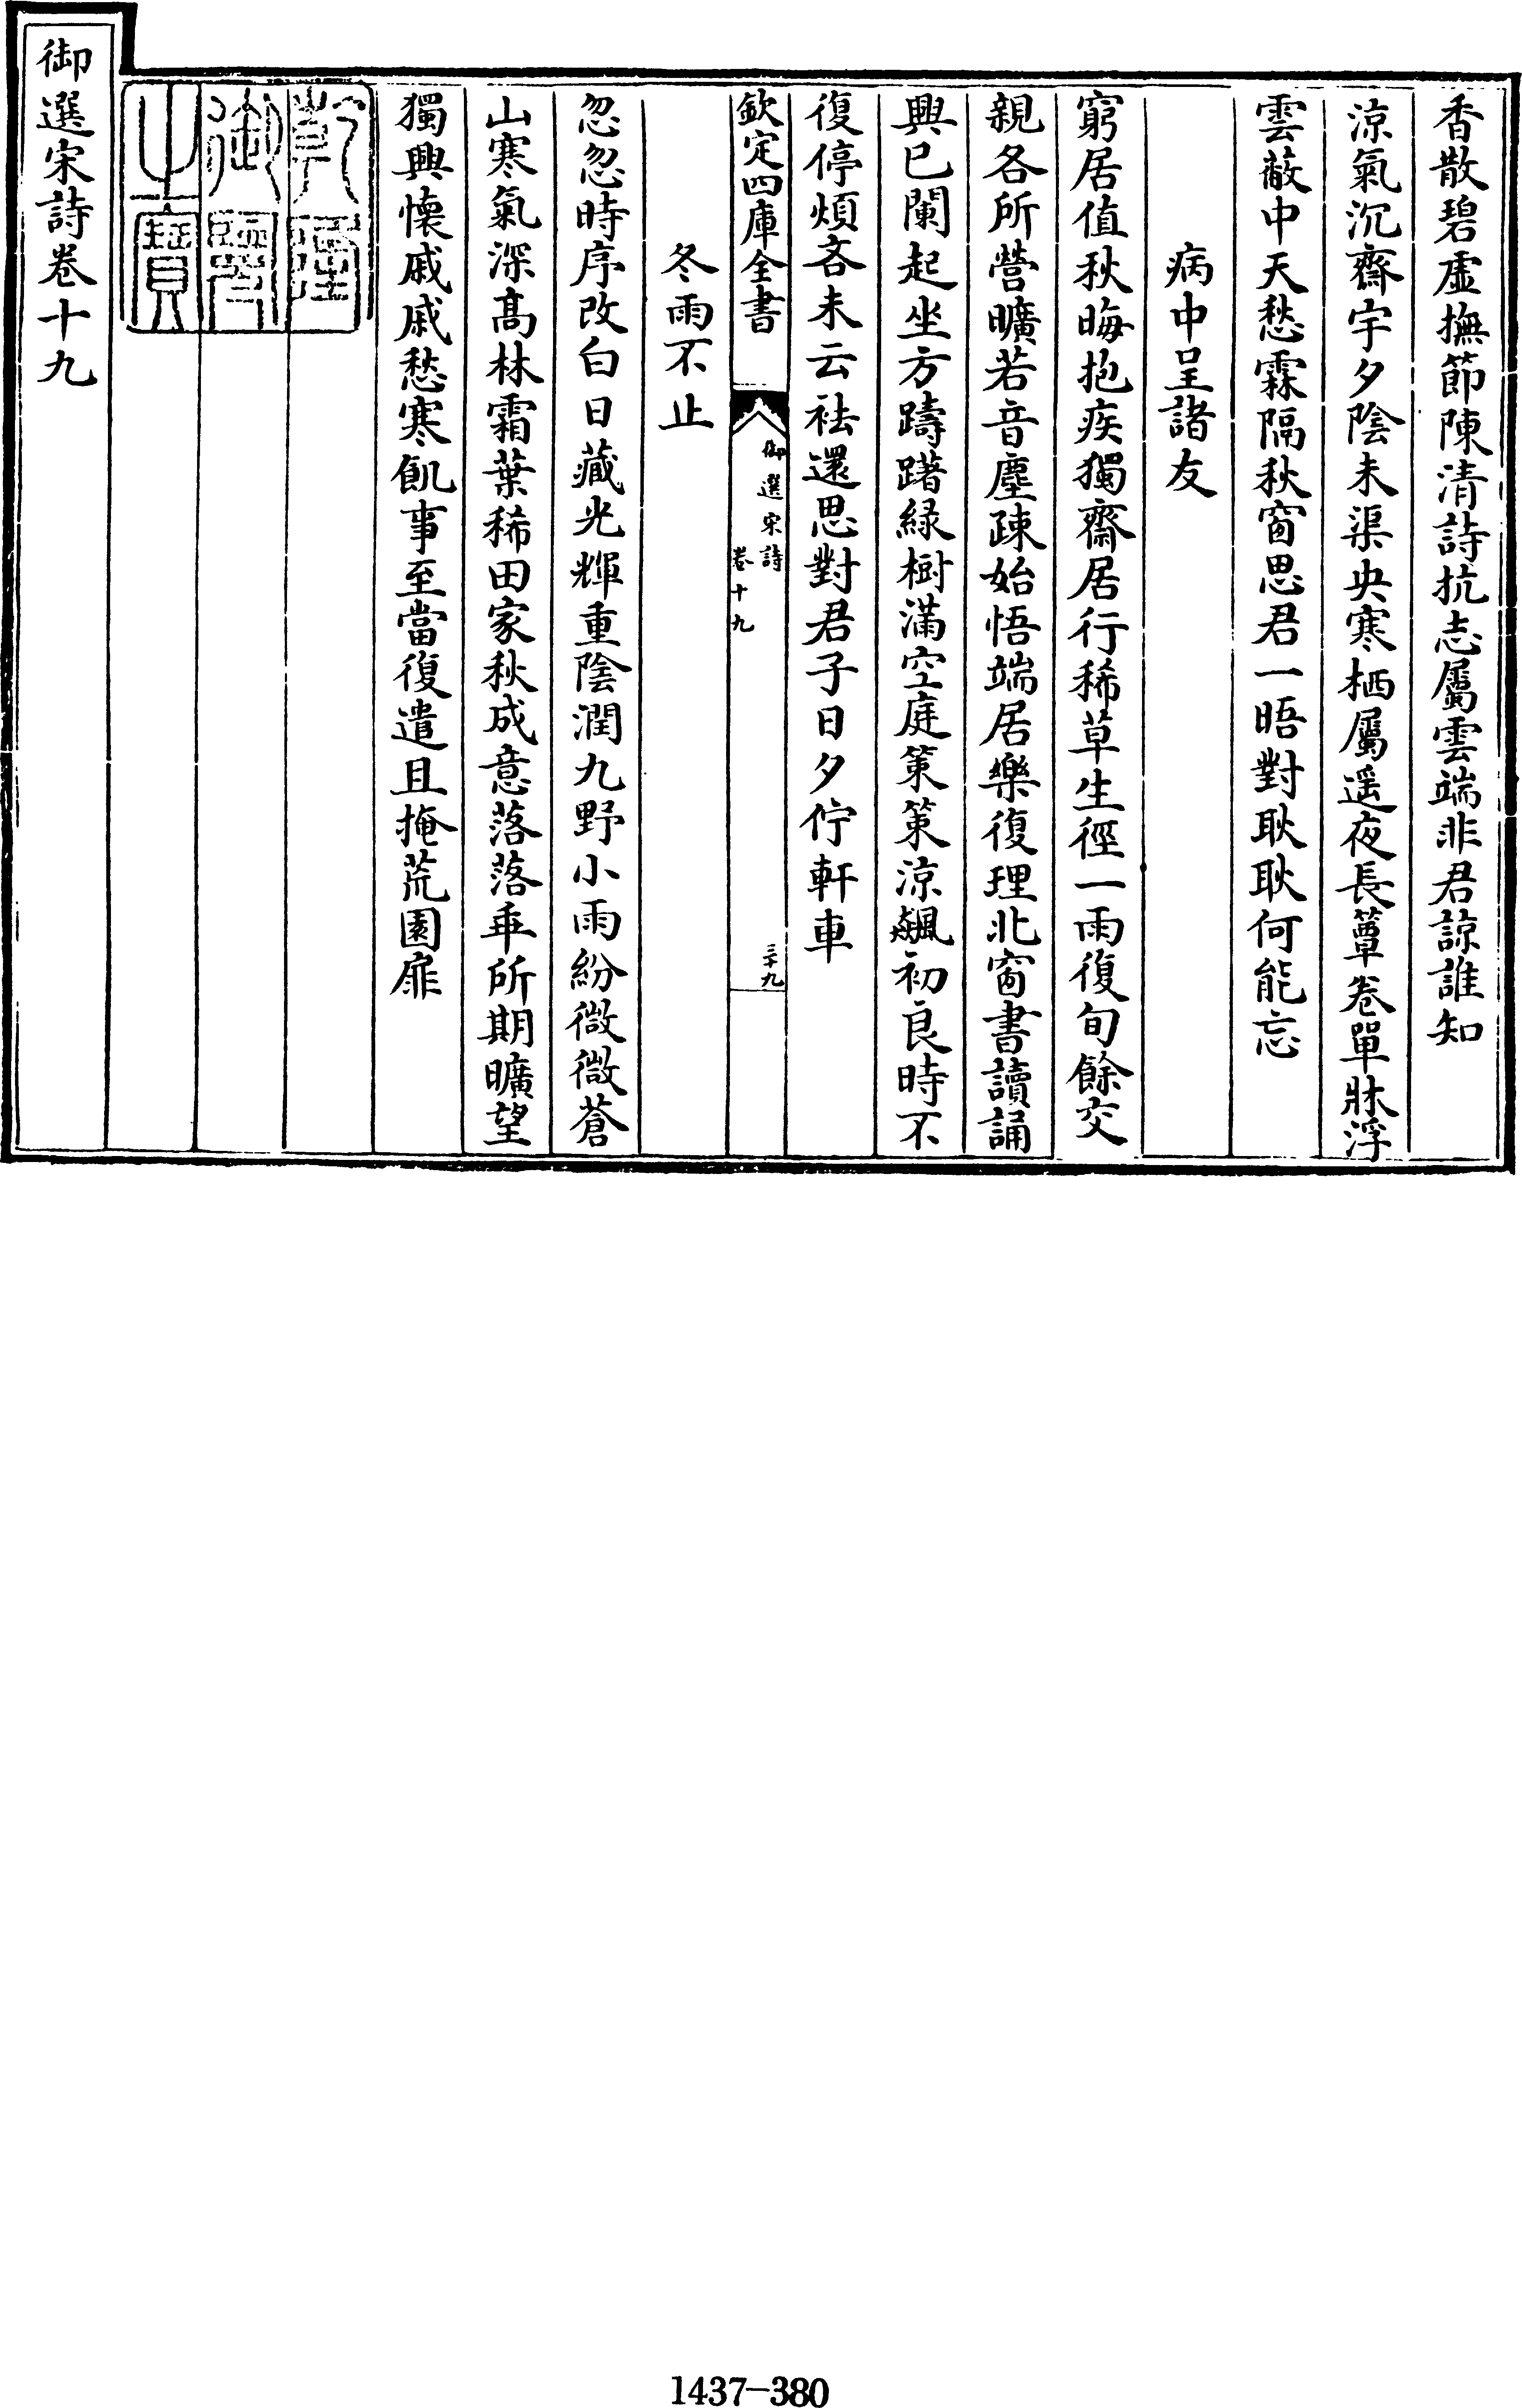 香散碧虛撫節陳清詩抗志屬雲端非君諒誰知
涼氣沉齋宇夕陰未渠央寒栖屬遥夜長簟卷單牀浮
雲蔽中天愁霖隔秋窗思君一晤對耿耿何能忘
病中呈諸友
窮居值秋晦抱疾獨齋居行稀草生徑一雨復旬餘交
親各所營曠若音塵疎始悟端居樂復理北窗書讀誦
興已闌起坐方躊躇緑樹滿空庭策策涼飊初良時不
復停煩吝未云袪還思對君子日夕佇軒車
欽定四庫全書
御選宋詩
卷十九
三十九
冬雨不止
忽忽時序改白日藏光輝重陰潤九野小雨紛微微蒼
山寒氣深髙林霜葉稀田家秋成意落落乖所期曠望
獨興懐戚戚愁寒飢事至當復遣且掩荒園扉
乾隆
御覽
之寶
御選宋詩卷十九
1437-380